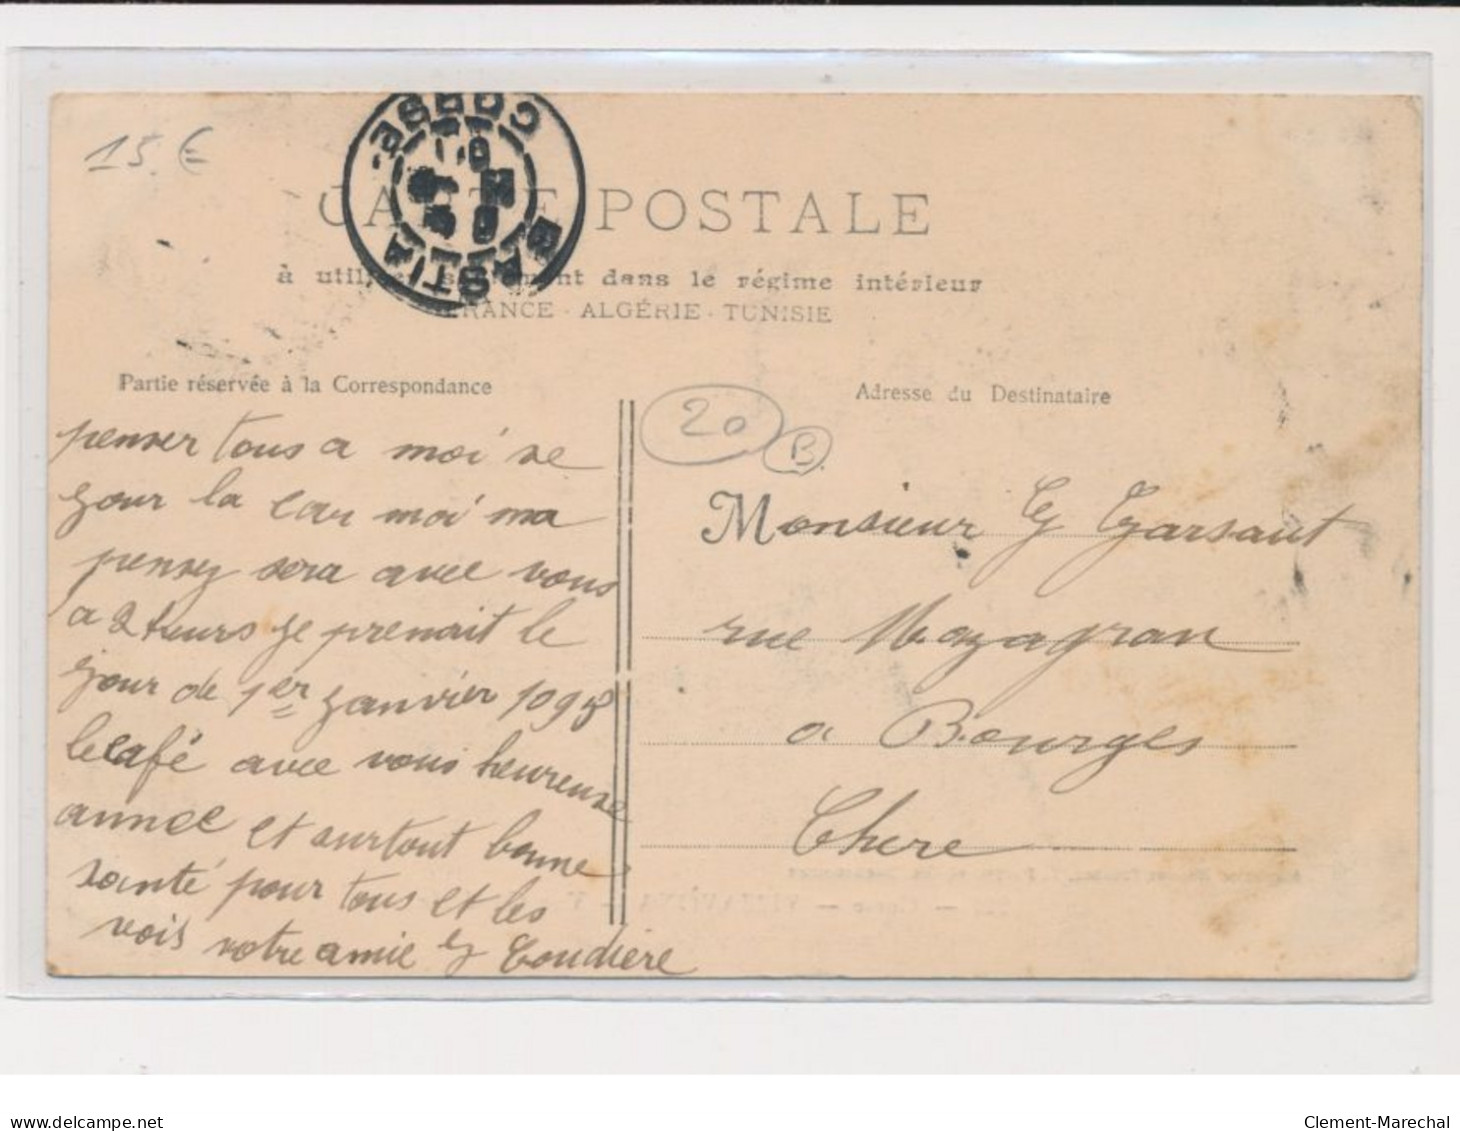 15. €
CORSE
BASTIA
CARTE POSTALE
à utiliser seulement dans le régime intérieur
FRANCE - ALGÉRIE - TUNISIE
Partie réservée à la Correspondance
penser tous a moi se
jour la car moi ma
pensez sera avec vous
a 2 heurs je prenait le
jour de 1er janvier
le café avec vous heureuse
annee et surtout bonne
santé pour tous et les
votre amie G
Adresse du Destinataire
20
B
Monsieur G Garsaut
rue Mazagran
a Bourges
Chere
delcampe.net
Clement-Marechal